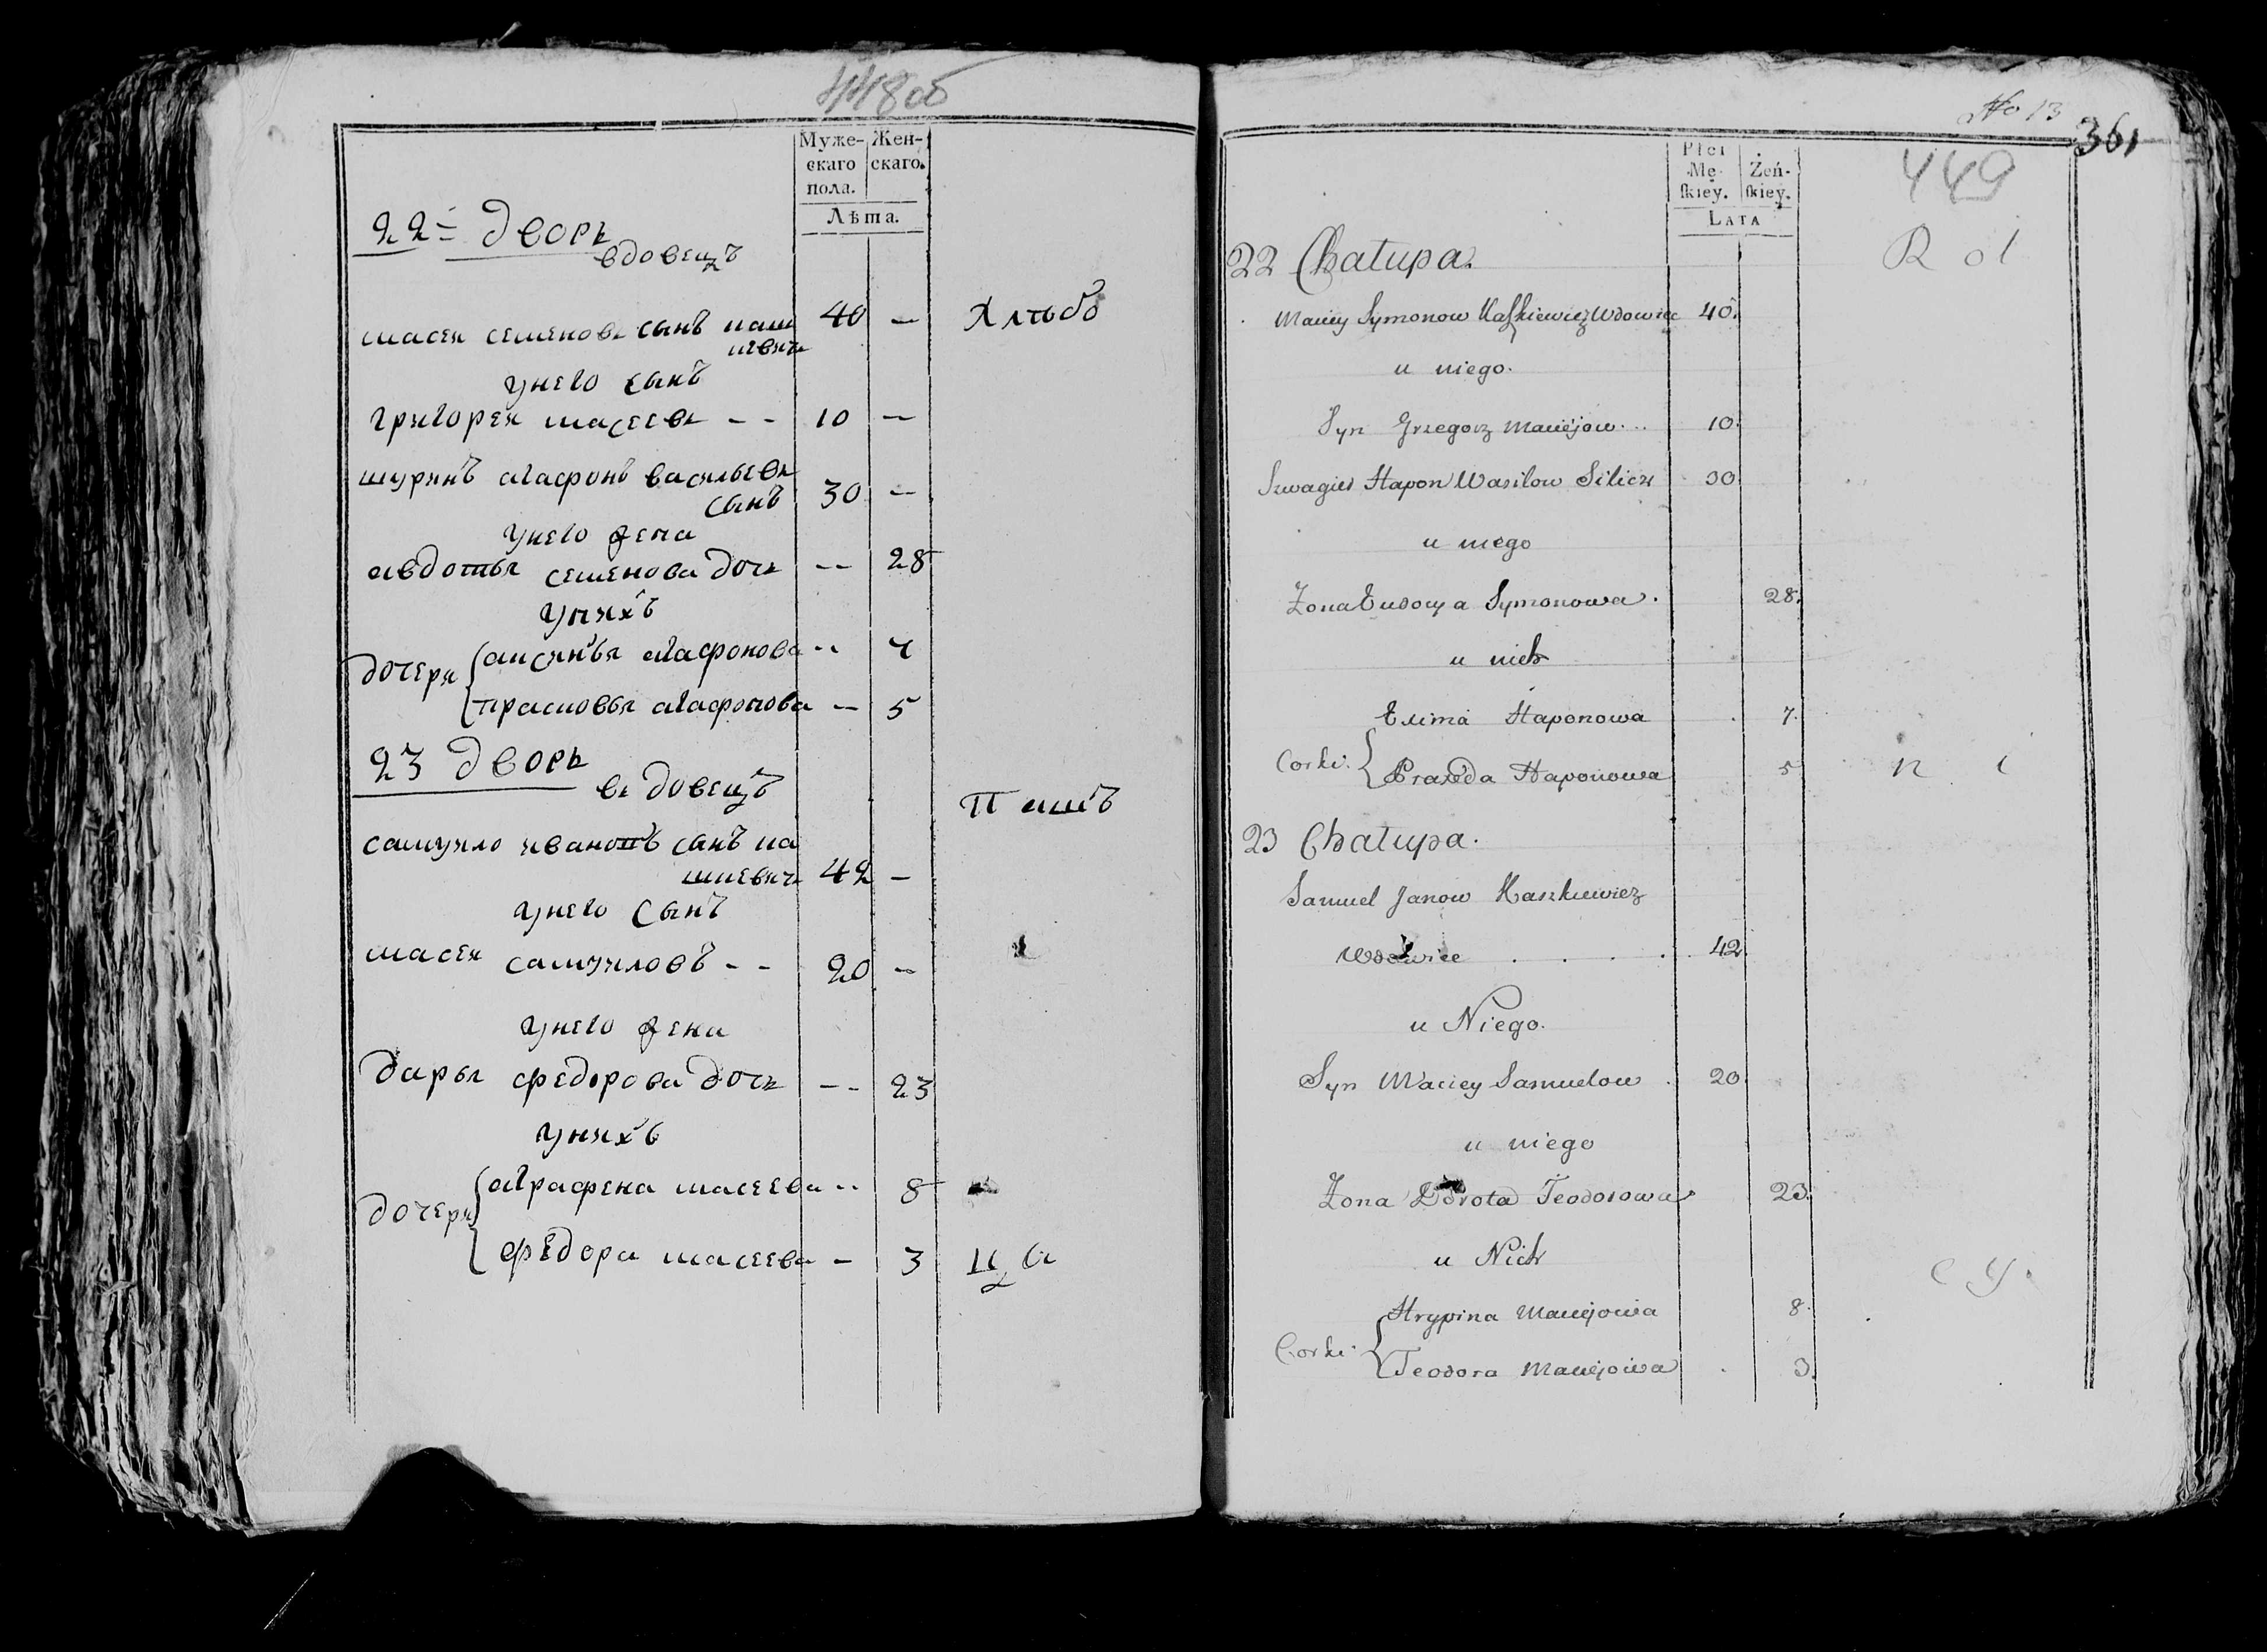 448 об
Муже-
скаго
пола.
Жен-
скаго.
Лѣта.
22 дворъ
вдовецъ
масей семеновъ сынъ каш
кевичъ 40 — Хлѣбо
унего сынъ
григорей масеевъ - - 10 —
шуринъ агафонъ васильевъ
сынъ 30 —
унего жена
авдотья семенова дочь -- 28
унихъ
дочери
аксинья агафонова -- 7
прасковья агафонова -- 5
23 дворъ
въдовецъ
Пашъ
самуйло ивановъ сынъ ка
шкевичъ 42 —
унего сынъ
масей самуйловъ - - 20 —
унего жена
дарья федорова дочь -- 23
унихъ
дочери
аграфена масеева -- 8
федора масеева — 3 ца
No 13
361
449
Płci
Mę-
skiey.
Żeń-
skiey.
Lata
Rol
22 Chałupa.
Maciey Symonow Kaszkiewicz Wdowiec 40.
u niego.
Syn Grzegorz Maciejow... 10.
Szwagier Hapon Wasilow Silicz 30
u niego
Zona Eudocya Symonowa. 28.
u nich
Corki.
Haponowa 7.
Praxeda Haponowa 5
n i
23 Chałupa.
Samuel Janow Kaszkiewicz
Wdowiec . . . . 42.
u Niego.
Syn Maciey Samuelow . 20
u niego
Zona Dorota Teodorowa 23.
u Nich
cy.
Corki.
Hrypina Maciejowa 8.
Teodora Maciejowa . 3.